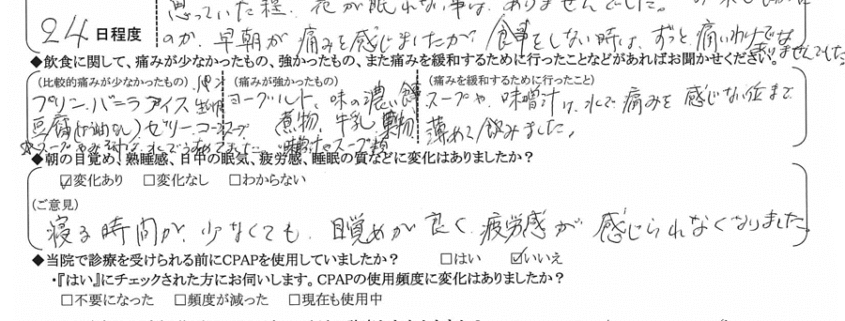 思っていた程、夜が眠れない事は、ありませんでした。
24 日程度 のか、早朝が痛みを感じましたが、食事をしない時は、ずっと痛いわけでは
ありませんでした
◆飲食に関して、痛みが少なかったもの、強かったもの、また痛みを緩和するために行ったことなどがあればお聞かせください。
(比較的痛みが少なかったもの) (痛みが強かったもの) (痛みを緩和するために行ったこと)
プリン、バニラアイス ヨーグルト、味の濃い食 スープや、味噌汁は、水で痛みを感じない位まで
豆腐 ゼリー、コーンスープ 煮物、牛乳、果物 薄めて飲みました。
味噌汁、スープ類
◆朝の目覚め、熟睡感、日中の眠気、疲労感、睡眠の質などに変化はありましたか?
☑変化あり □変化なし □わからない
(ご意見)
寝る時間が、少なくても、目覚めが良く、疲労感が感じられなくなりました。
◆当院で診療を受けられる前にCPAPを使用していましたか? □はい ☑いいえ
・『はい』にチェックされた方にお伺いします。CPAPの使用頻度に変化はありましたか?
□不要になった □頻度が減った □現在も使用中